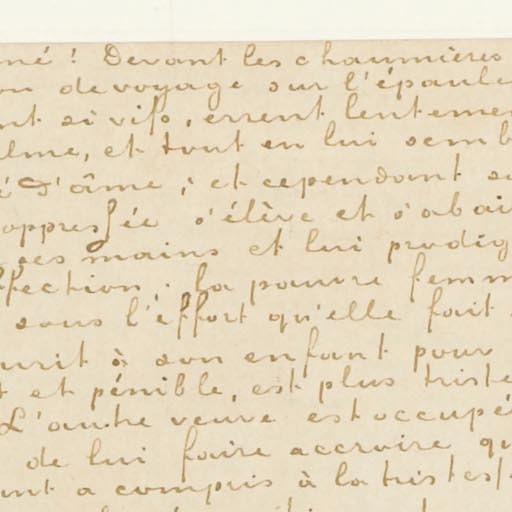 né ! Devant les chaumières
on de voyage sur l'épaule
nt si vifs, errent lenteme
lme, et tout en lui semb
é d'âme ; et cependant s
oppressée s'élève et s'abai
ses mains et lui prodig
ffection. La pauvre femm
sous l'effort qu'elle fait
urit à son enfant pour
t et pénible, est plus triste
L'autre veuve est occupé
de lui faire accroire qu
nt a compris à la tristes